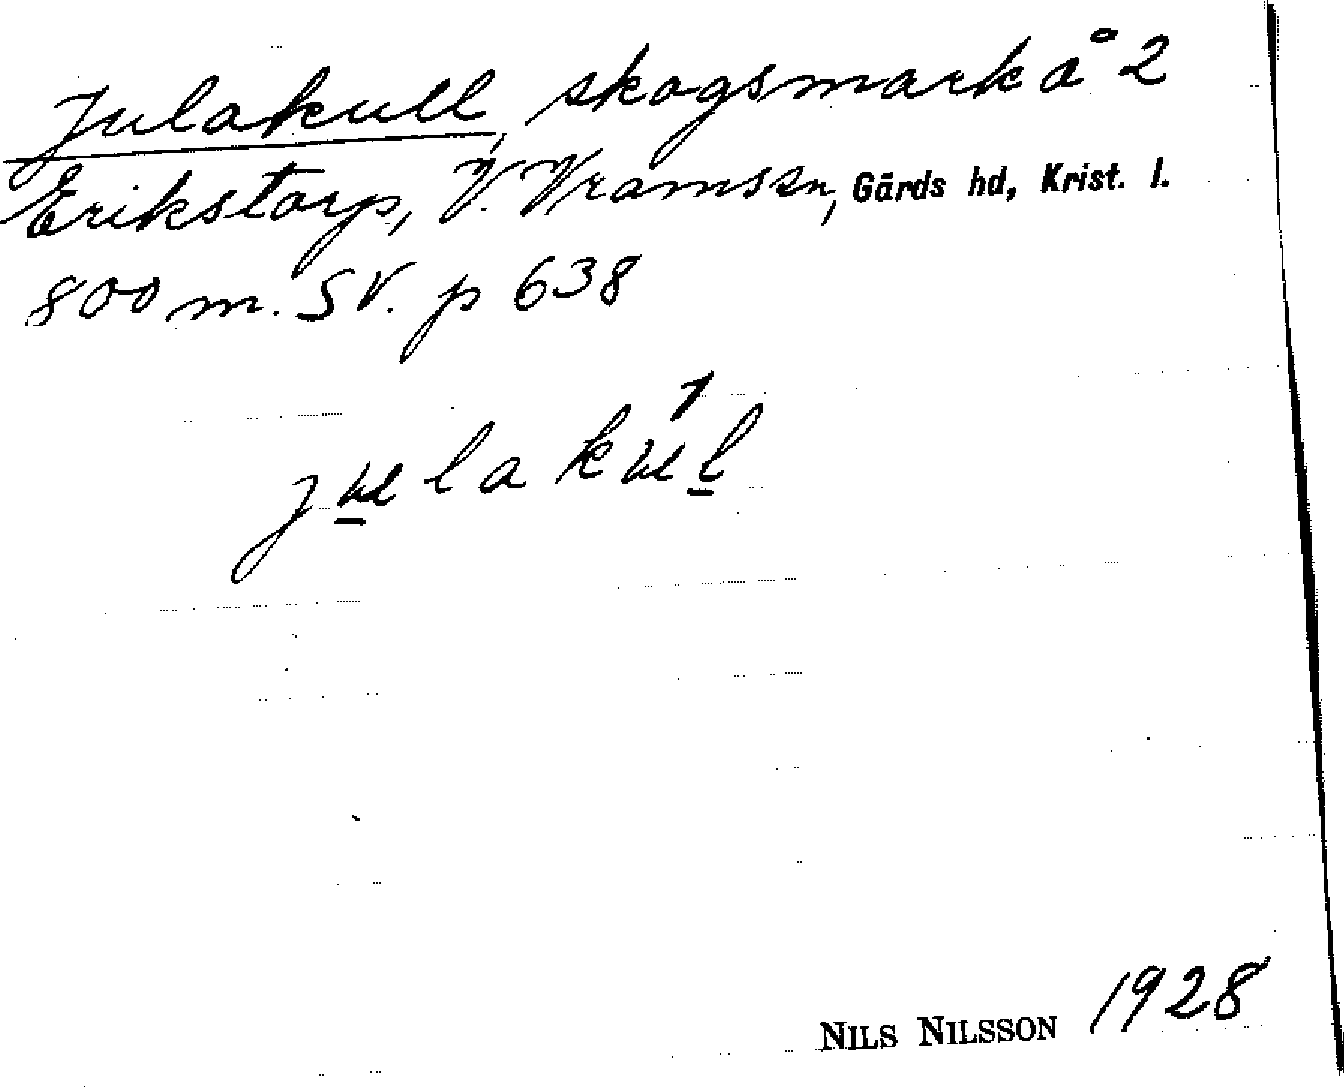 Julakull, skogsmark å 2
Erikstorp, V. Vram sn, Gärds hd, Krist. l.
800 m. SV. p 638
julakul
NILS NILSSON 1928